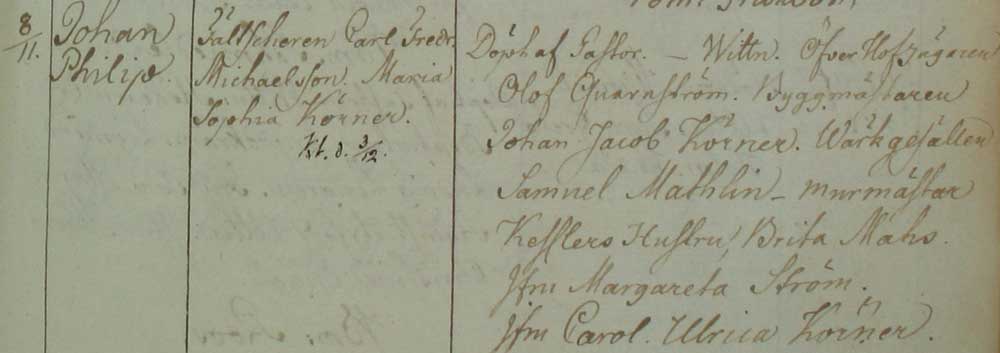 8/11.
Johan
Philip.
Fältscheren Carl Fredr.
Michaelsson. Maria
Sophia Körner.
Kt. d. 3/12.
Döpt af Pastor. — Wittn. Öfver Hofjägaren
Olof Quarnström. Byggmästaren
Johan Jacob Körner. Wärkgesällen
Samuel Mathlin – murmästar
Kesslers Hustru, Brita Mahs.
Jfru Margareta Ström.
Jfru Carol. Ulrica Körner.